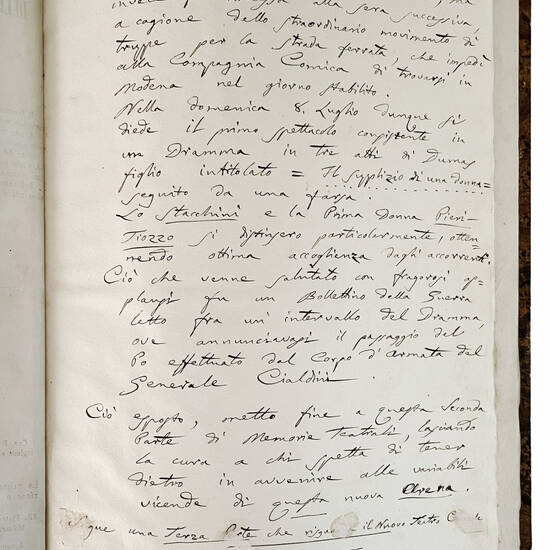 alla sera successiva
a cagione dello straordinario movimento di
truppe per la strada ferrata, che impedì
alla Compagnia Comica di trovarsi in
Modena nel giorno stabilito.
Nella domenica 8. Luglio dunque si
diede il primo spettacolo consistente in
un Dramma in tre atti di Dumas
figlio intitolato = Il supplizio di una donna =
seguito da una farsa.
Lo Stacchini e la Prima Donna Pieri-
Tiozzo si distinsero particolarmente, otte-
nendo ottima accoglienza dagli accorrenti.
Ciò che venne salutato con fragorosi ap-
plausi fu un Bollettino della Guerra
letto fra un' intervallo del Dramma,
ove annunciavasi il passaggio del
Po effettuato dal Corpo d'Armata del
Generale Cialdini.
Ciò esposto, metto fine a questa seconda
Parte di Memorie Teatrali, lasciando
la cura a chi spetta di tener
dietro in avvenire alle variabili
vicende di questa nuova Arena.
Segue una Terza Pte che il Nuovo Teatro